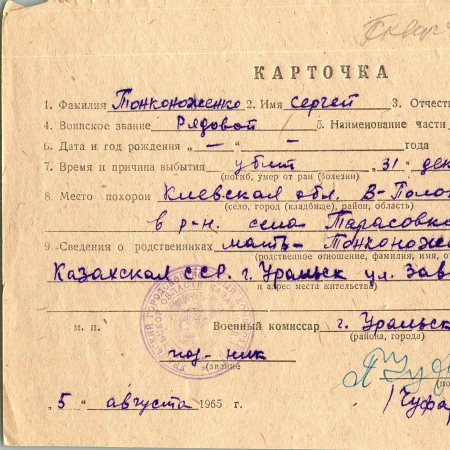 КАРТОЧКА
1. Фамилия Тонконоженко 2. Имя Сергей 3. Отчест
4. Воинское звание Рядовой 5. Наименование части
6. Дата и год рождения „ — “ — года
7. Время и причина выбытия убит „31" дек
(погиб, умер от ран (болезни)
8. Место похорон Киевская обл. В-Полов
(село, город (кладбище), район, область)
в р-н. село Тарасовка
9. Сведения о родственниках мать- Тонконоже
(родственное отношение, фамилия, имя, о
Казахская ССР. г. Уральск ул. Зав
и адрес места жительства)
м. п. Военный комиссар г. Уральск
(района, города)
под-ник
(звание
(по
„5 " августа 1965 г. /Чуфа